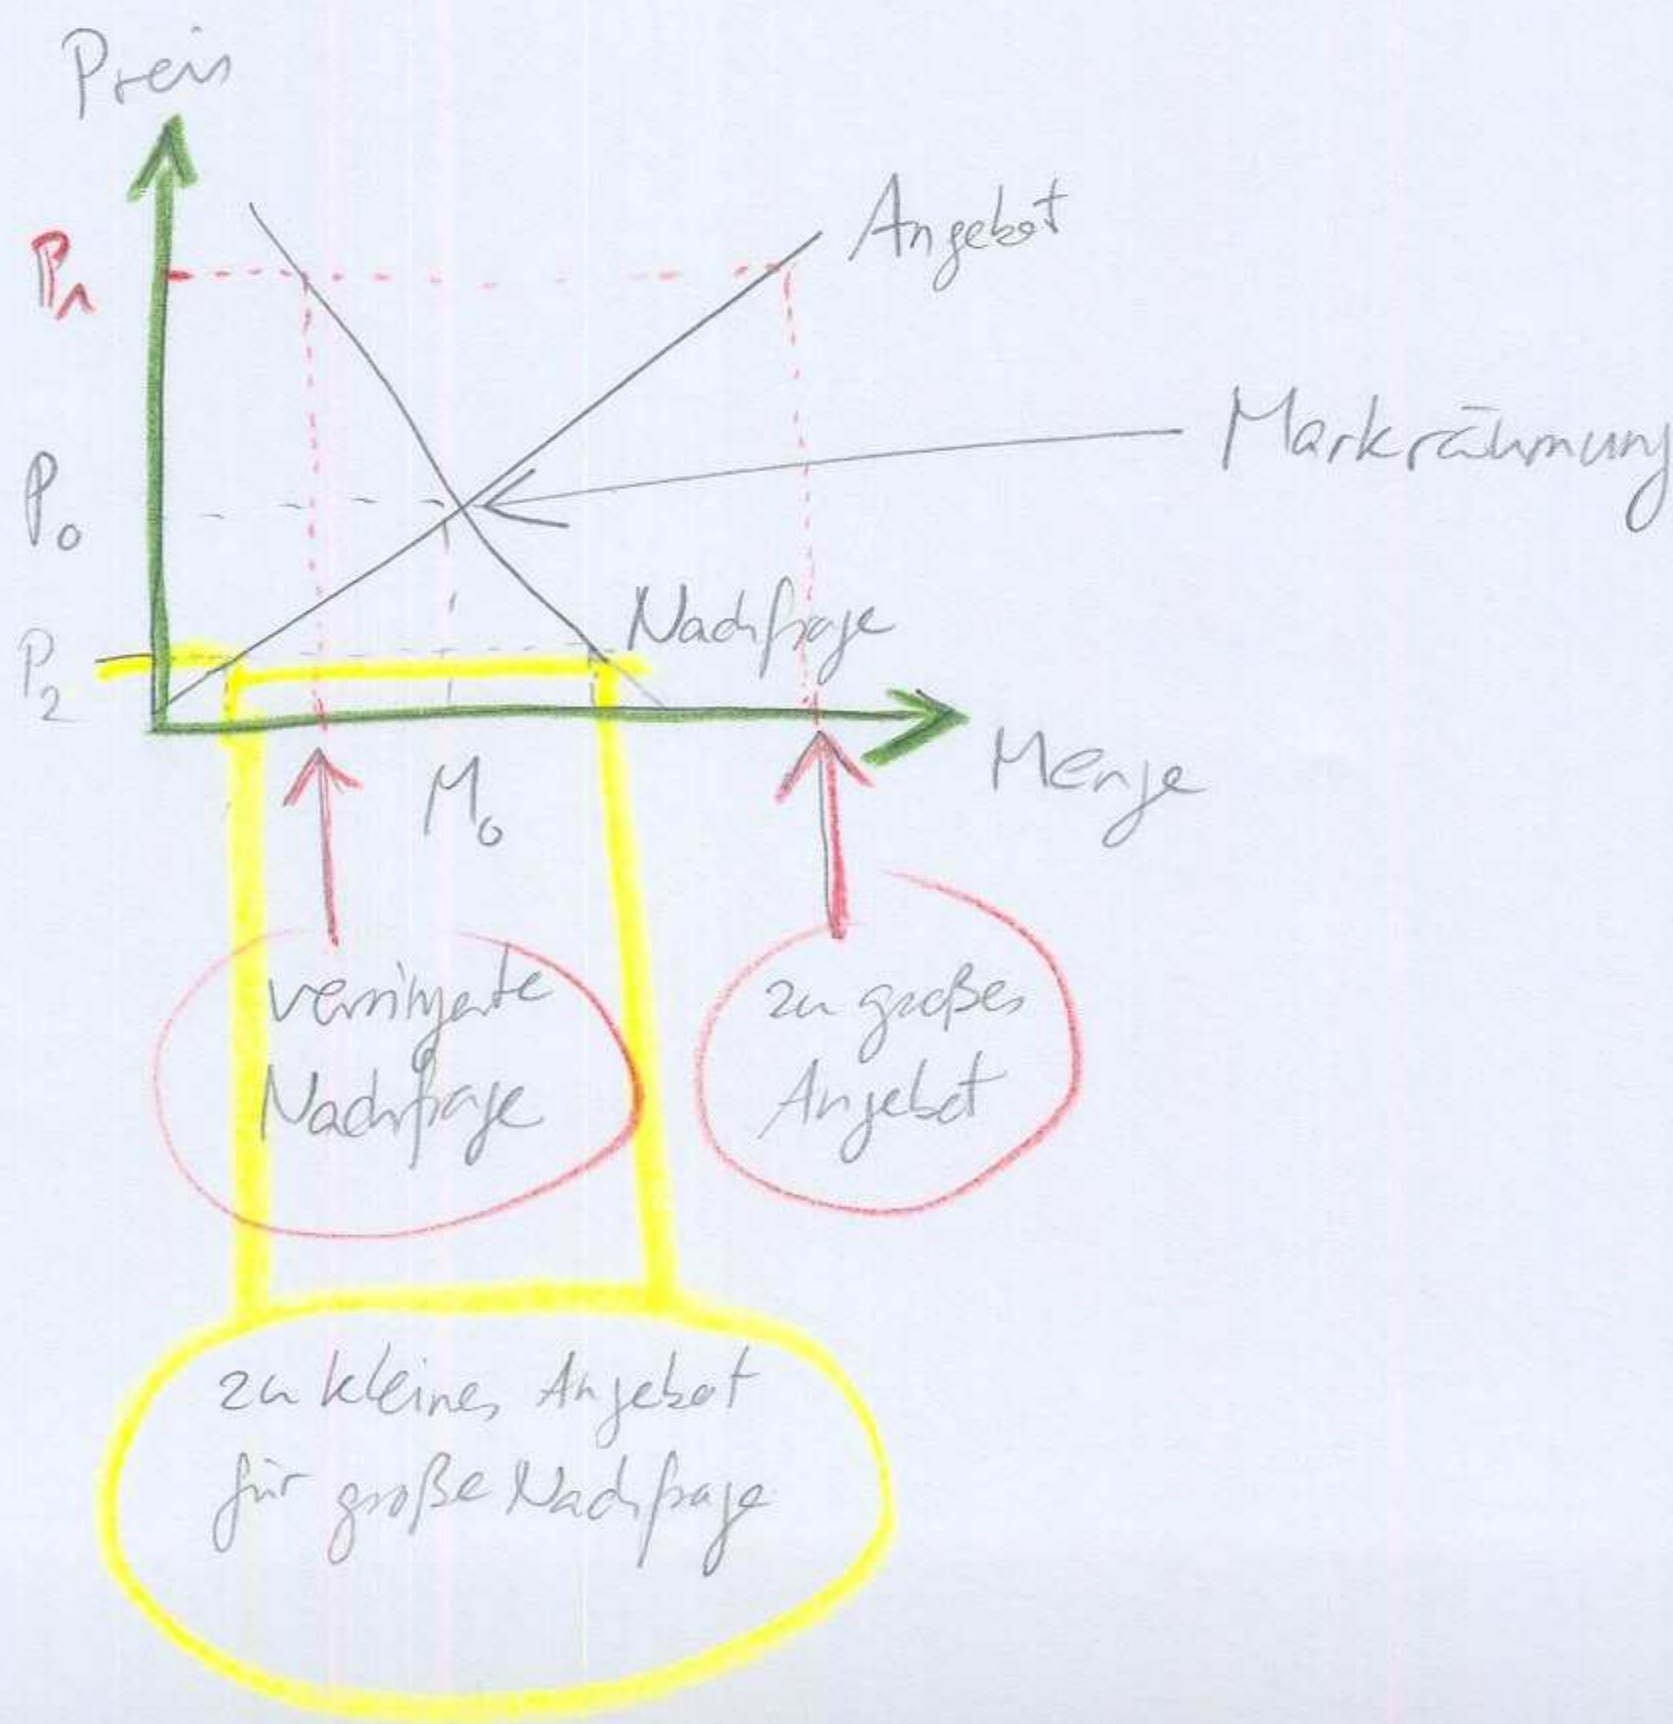 Preis
Angebot
P₁
Markräumung
P₀
Nachfrage
P₂
Menge
M₀
verringerte
Nachfrage
zu großes
Angebot
zu kleines Angebot
für große Nachfrage